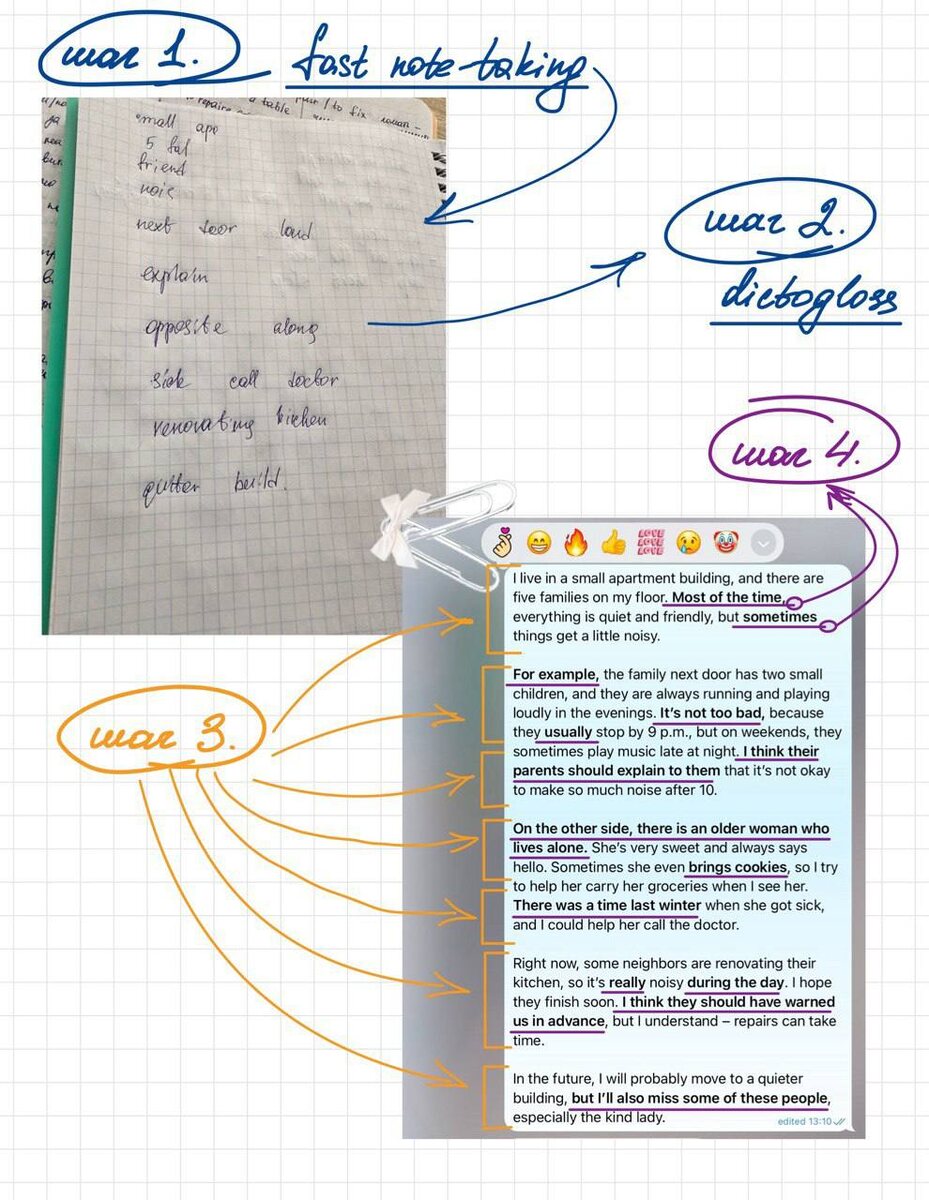 шаг 1. fast note-taking
repaire a table / to fix
small apo
5 fal
friend
nois
next door loud
explain
opposite along
sick call doctor
renovating kichen
quitter build.
шаг 2.
dictogloss
шаг 4.
LOVE
LOVE
LOVE
I live in a small apartment building, and there are
five families on my floor. Most of the time,
everything is quiet and friendly, but sometimes
things get a little noisy.
шаг 3.
For example, the family next door has two small
children, and they are always running and playing
loudly in the evenings. It's not too bad, because
they usually stop by 9 p.m., but on weekends, they
sometimes play music late at night. I think their
parents should explain to them that it's not okay
to make so much noise after 10.
On the other side, there is an older woman who
lives alone. She's very sweet and always says
hello. Sometimes she even brings cookies, so I try
to help her carry her groceries when I see her.
There was a time last winter when she got sick,
and I could help her call the doctor.
Right now, some neighbors are renovating their
kitchen, so it's really noisy during the day. I hope
they finish soon. I think they should have warned
us in advance, but I understand – repairs can take
time.
In the future, I will probably move to a quieter
building, but I'll also miss some of these people,
especially the kind lady.
edited 13:10